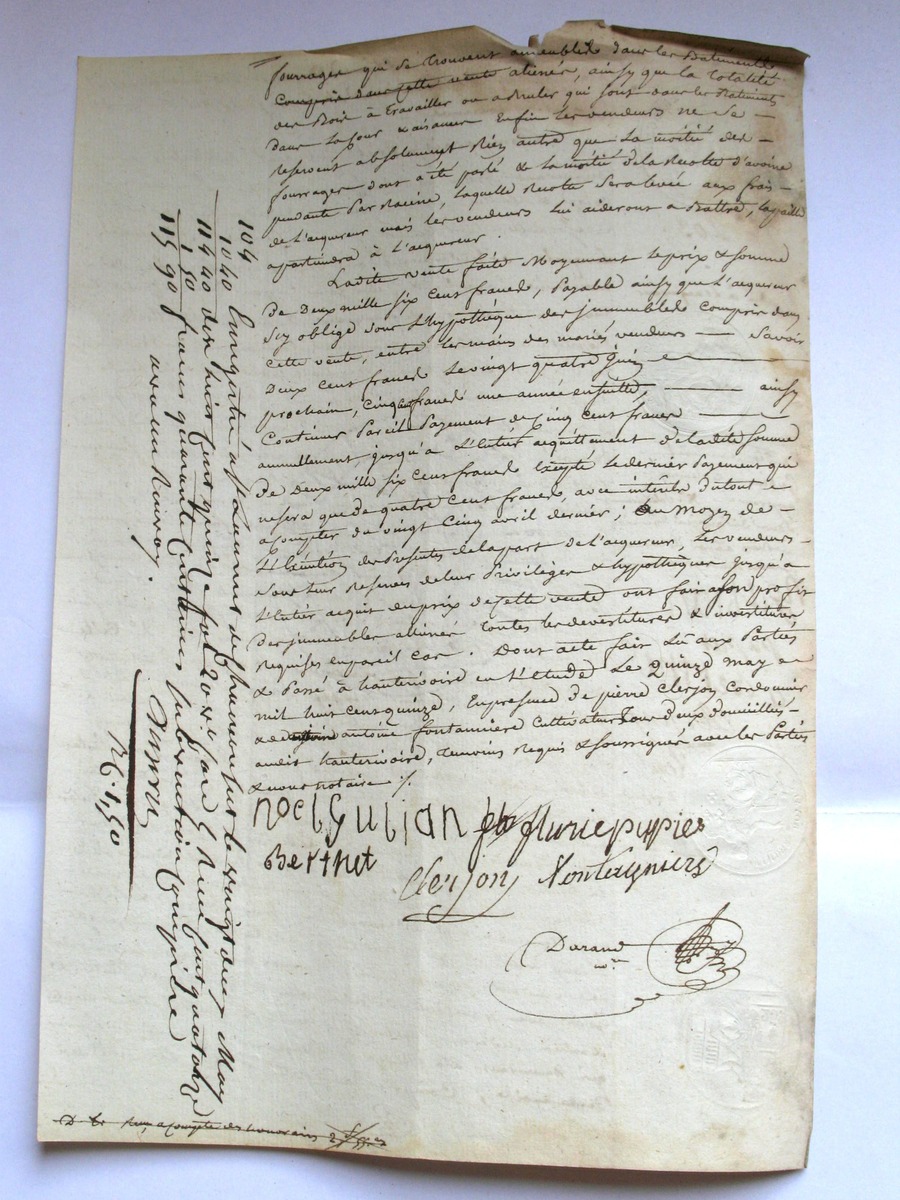 fourrages qui se trouvent ameublés dans les Batiments
compris dans cette vente aliénés, ainsy que la totalité
des Bois à travailler ou a Bruler qui sont dans les Batiments
dans la Cour & aisances Enfin les vendeurs ne se
reservent absolument Rien autre que la moitié des
fourrages dont a été parlé & la moitié de la Recolte d'avoine
pendante Par Racine, laquelle Recolte Sera levée aux frais
de l'aquereur mais les vendeurs lui aideront a Battre, la paille
apartiendra à L'aquereur.
Ladite vente faite Moyennant le prix & somme
De Deux mille six Cent francs, Payable ainsy que L'aquereur
s'y oblige sous L'hypothèque des jmmeubles Compris dans
Cette vente, entre les mains des mariés vendeurs — Savoir
Deux Cent francs Le vingt quatre Juin
prochain, Cinq Cent francs une année ensuitte, — ainsy
Continuer Pareil Payement de Cinq Cent francs —
annuellement, jusqu'à L'Entier aquittement de ladite Somme
De Deux mille six Cent francs Excepté le dernier Payement qui
ne sera que de quatre Cent francs, avec intérêts du tout a
Compter du vingt Cinq avril dernier; Au Moyen de
L'Exécution des Présentes de la part de l'aquereur, Les vendeurs
Sous leur Reserves de leur Privilèges & hypothèques jusqu'à
L'Entier acquit du prix de Cette vente ont fait a son profit
Des jmmeubles aliénés toutes les devestitures & investitures
requises en pareil Cas. Dont acte fait Lû aux Parties
& Passé à hauterivoire en L'étude Le quinze may
mil huit Cent quinze, En presence de pierre Clerjon Cordonnier
& de antoine fontanière Cultivateur Tous deux domiciliés
audit hauterivoire, temoins requis & soussignés avec les Parties
& nous notaire ./.
noel Gulian fleurie pupier
Berthet
Clerjon fontagnières
Durand
nre
104
10 40
114 40
1 50
115 90
Enregistré a St Laurent de Chamousset le vingt deux May
dix huit Cent quinze fol 20 Vo Case 5 Reçu Cent quatorze
francs quarante Centimes Subvention Comprise
R. 1,50
Reçu a Compte des honoraires